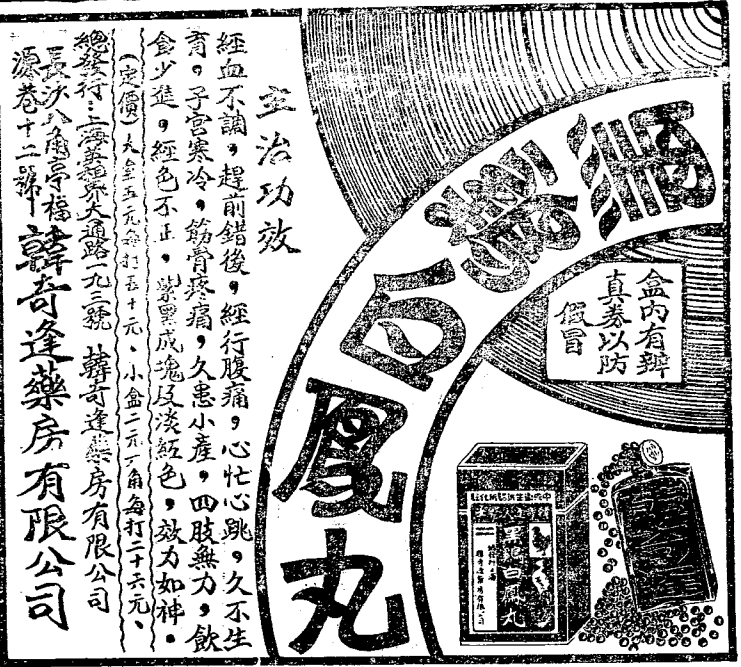 白鳳丸
盒內有辨
真券以防
假冒
白鳳丸
主治功效
經血不調，趕前錯後，經行腹痛，心忙心跳，久不生
育，子宮寒冷，筋骨疼痛，久患小產，四肢無力，飲
食少進，經色不正，紫黑成塊及淡紅色，效力如神。
(定價)大盒五元每打五十元、小盒二元一角每打二十六元、
總發行：上海英租界大通路一九三號 韓奇逢藥房有限公司
長沙八角亭福
源巷十二號
韓奇逢藥房有限公司